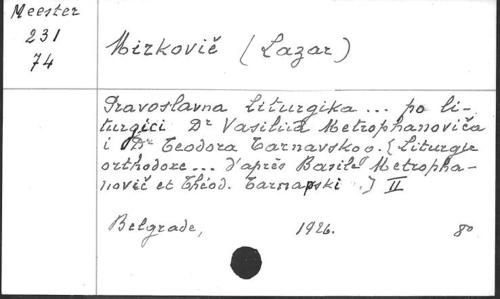 Meester
231
74
Mirkovič (Lazar)
Pravoslavna Liturgika ... po li-
turgici Dr Vasilija Metrophanoviča
i Dr Teodora Tarnavskog. [Liturgie
orthodoxe ... d'après Basile Metropha-
novič et Théod. Tarnapski .] II
Belgrade, 1926. 80